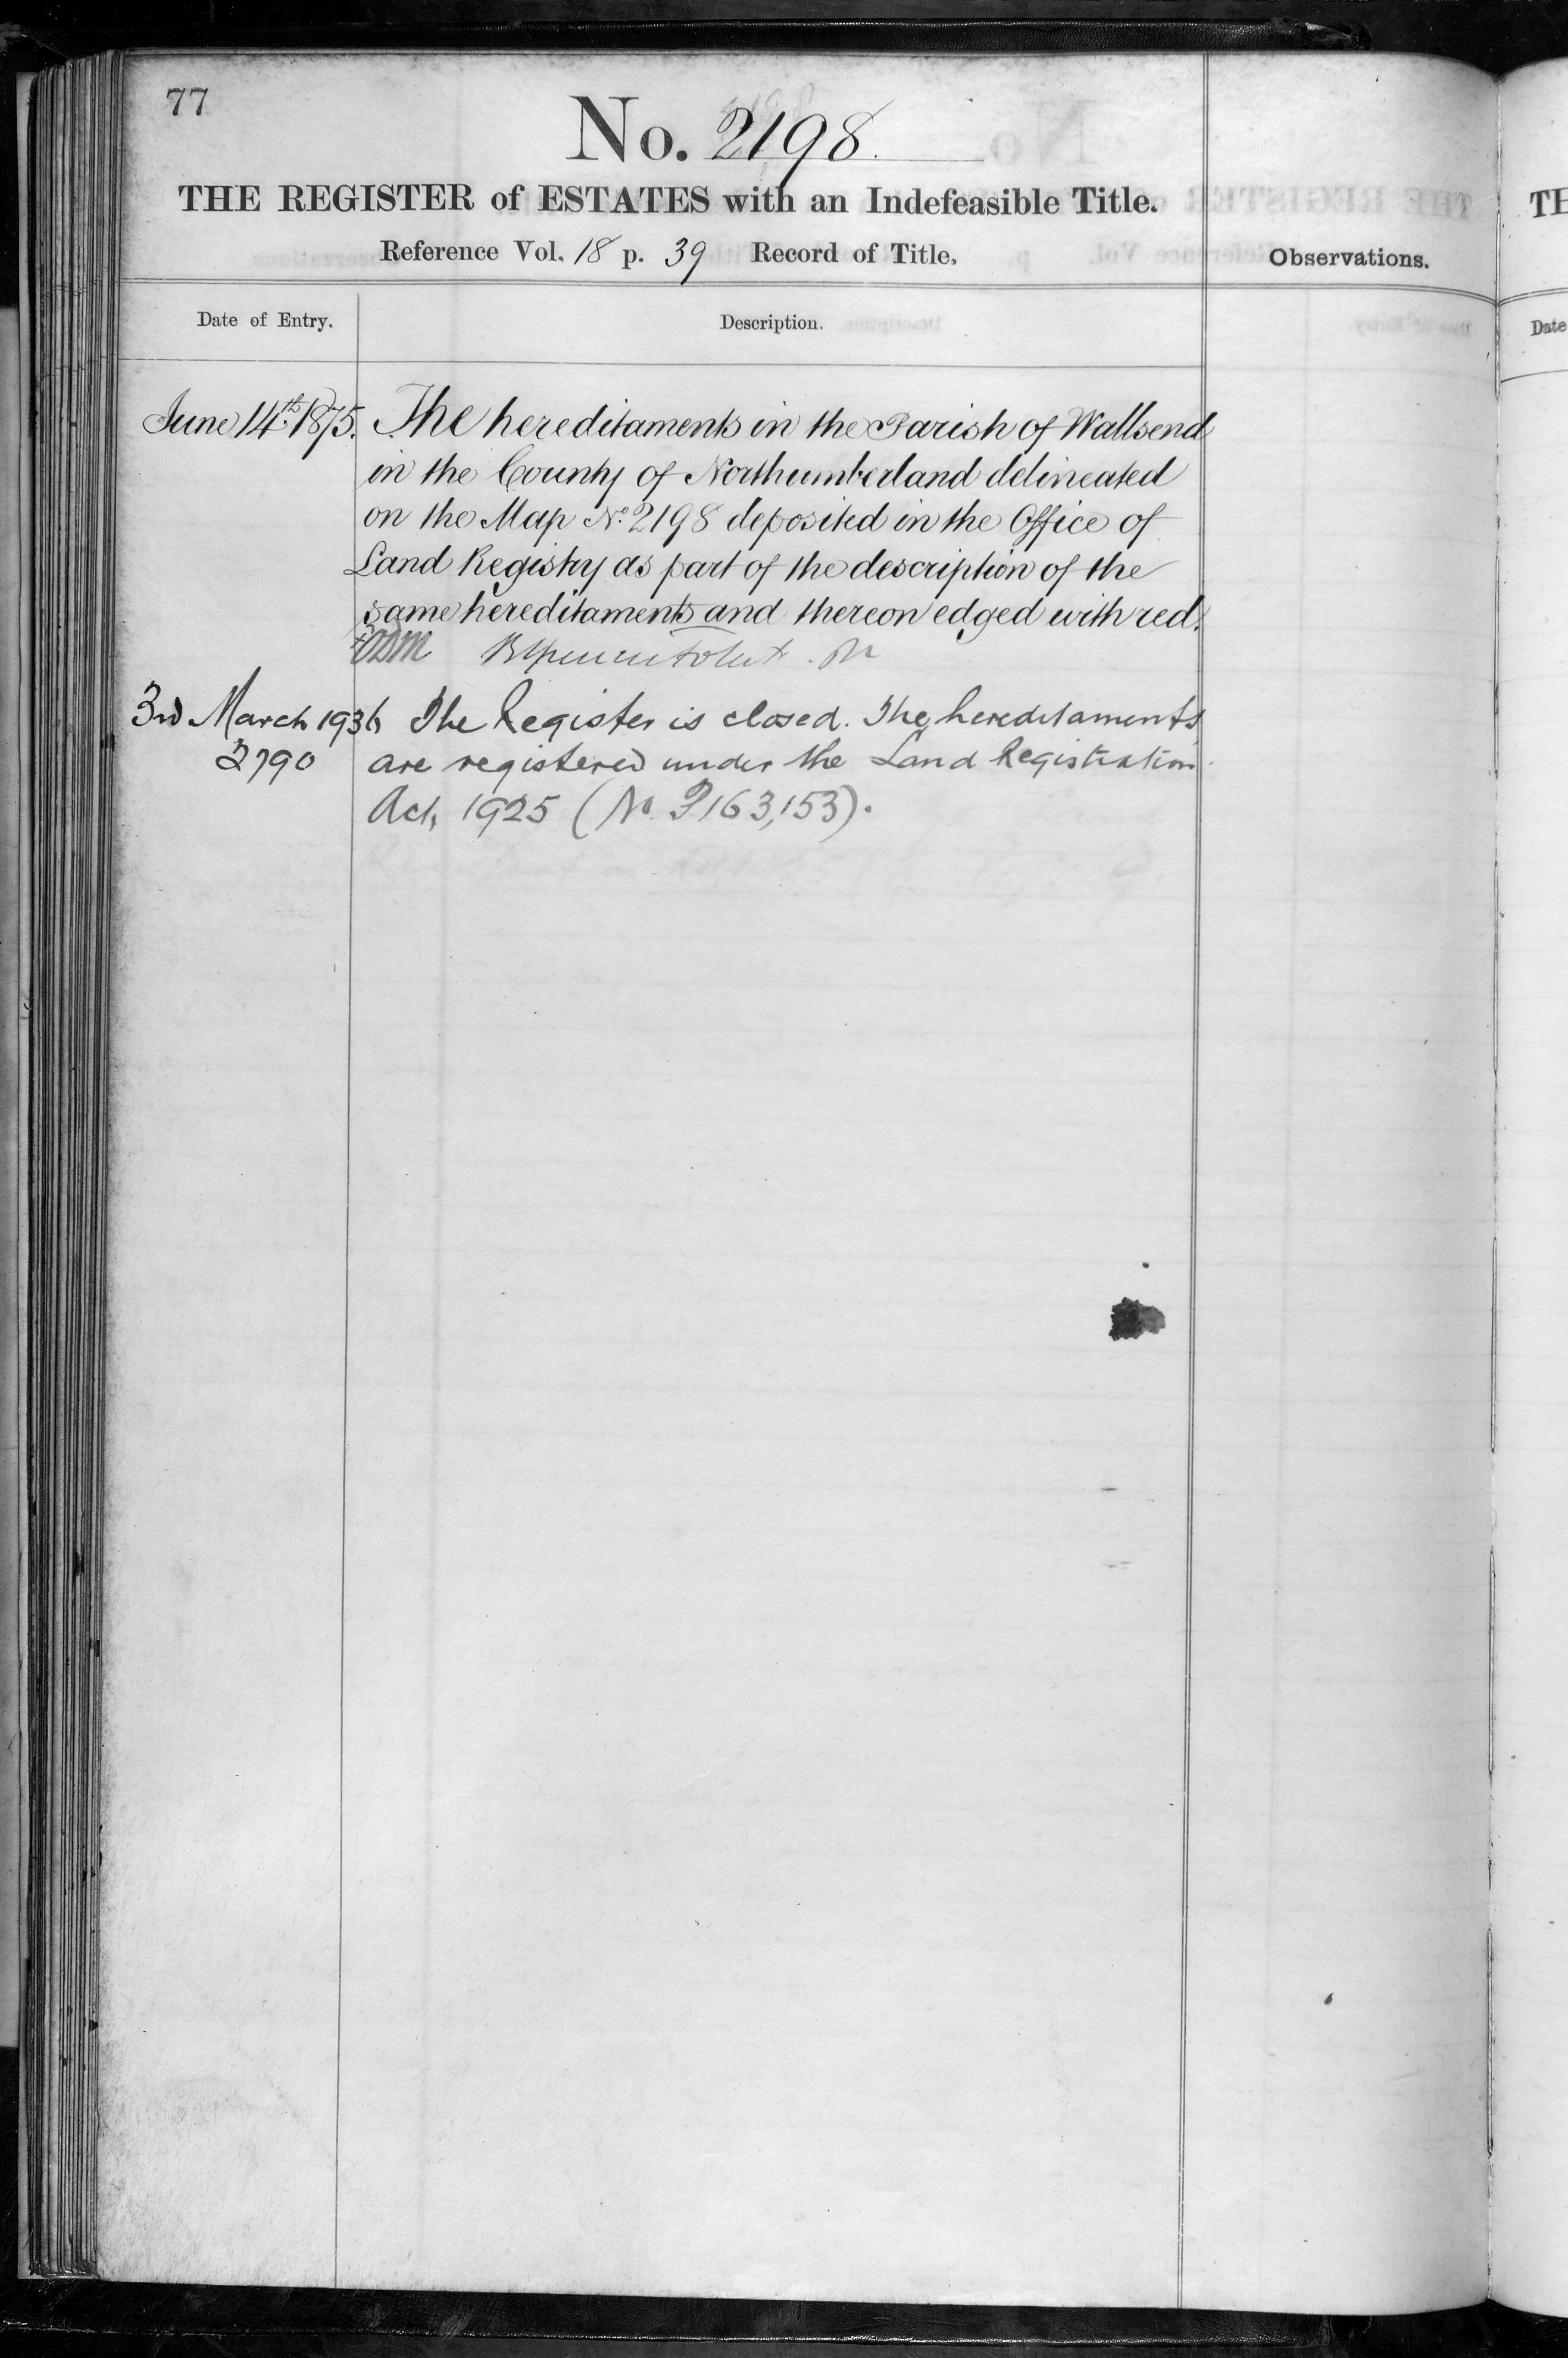 77
No. 2198.
THE REGISTER of ESTATES with an Indefeasible Title.
Reference Vol. 18 p. 39 Record of Title.
Observations.
Date of Entry.
Description.
June 14th 1875. The hereditaments in the Parish of Wallsend
in the County of Northumberland delineated
on the Map No. 2198 deposited in the Office of
Land Registry as part of the description of the
same hereditaments and thereon edged with red.
3rd March 1936 The Register is closed. The hereditaments
2790 are registered under the Land Registration
Act, 1925 (No. P163,153).
TH
Date